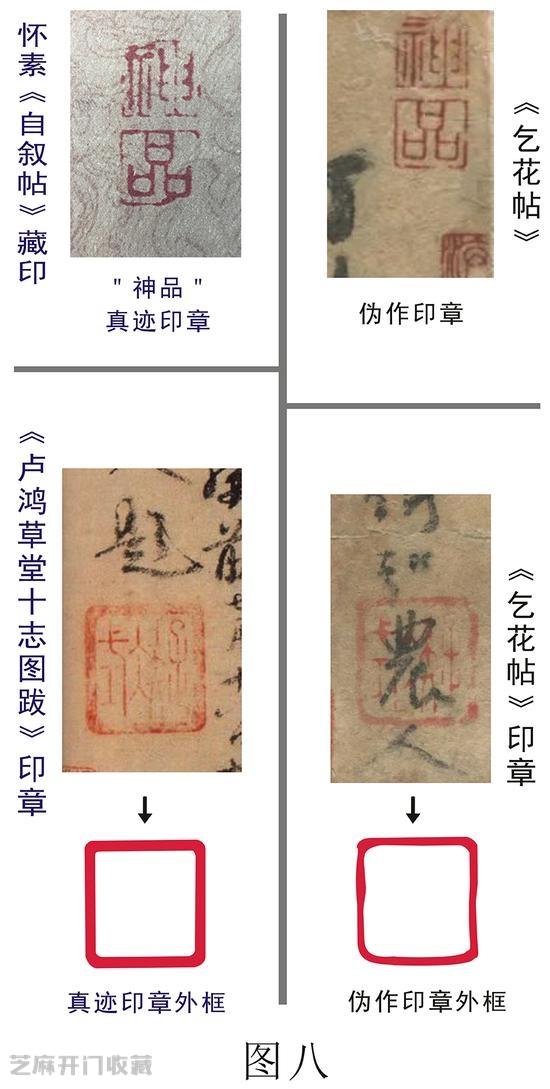 怀素《自叙帖》藏印
神品
"神品"
真迹印章
神品
《乞花帖》
伪作印章
《卢鸿草堂十志图跋》印章
题
真迹印章外框
农人
《乞花帖》印章
伪作印章外框
图八
芝麻开门收藏